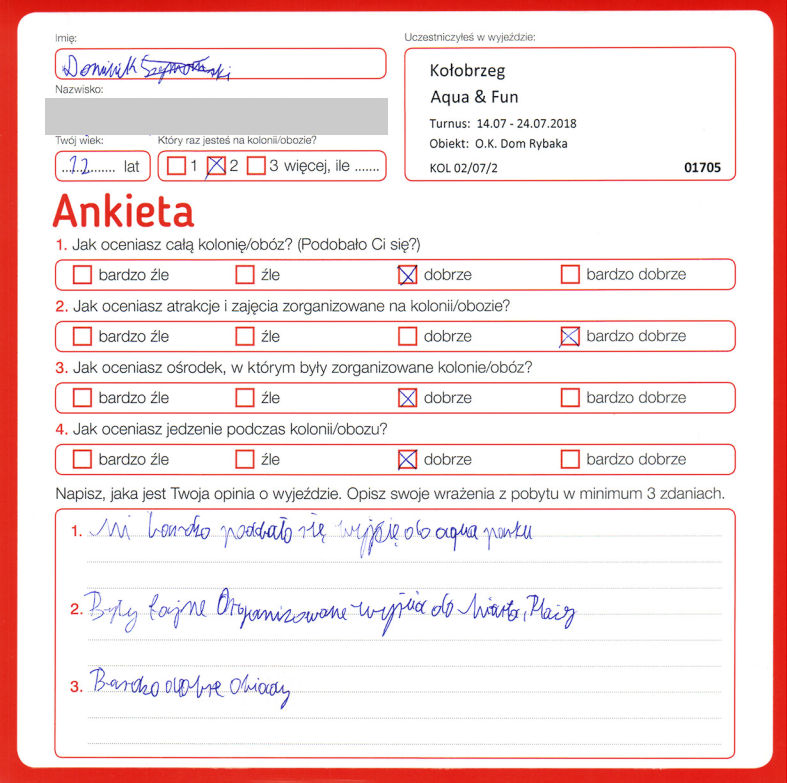 Imię:
Uczestniczyłeś w wyjeździe:
Dominik
Kołobrzeg
Aqua & Fun
Nazwisko:
Turnus: 14.07 - 24.07.2018
Obiekt: O.K. Dom Rybaka
KOL 02/07/2
01705
Twój wiek:
Który raz jesteś na kolonii/obozie?
...12........ lat
1 2 3 więcej, ile .......
Ankieta
1. Jak oceniasz całą kolonię/obóz? (Podobało Ci się?)
bardzo źle źle dobrze bardzo dobrze
2. Jak oceniasz atrakcje i zajęcia zorganizowane na kolonii/obozie?
bardzo źle źle dobrze bardzo dobrze
3. Jak oceniasz ośrodek, w którym były zorganizowane kolonie/obóz?
bardzo źle źle dobrze bardzo dobrze
4. Jak oceniasz jedzenie podczas kolonii/obozu?
bardzo źle źle dobrze bardzo dobrze
Napisz, jaka jest Twoja opinia o wyjeździe. Opisz swoje wrażenia z pobytu w minimum 3 zdaniach.
1. Mi bardzo podobało się wyjście do aqua parku
2. Były fajne Organizowane wyjścia do Miasta, Plaży
3. Bardzo dobre Obiady